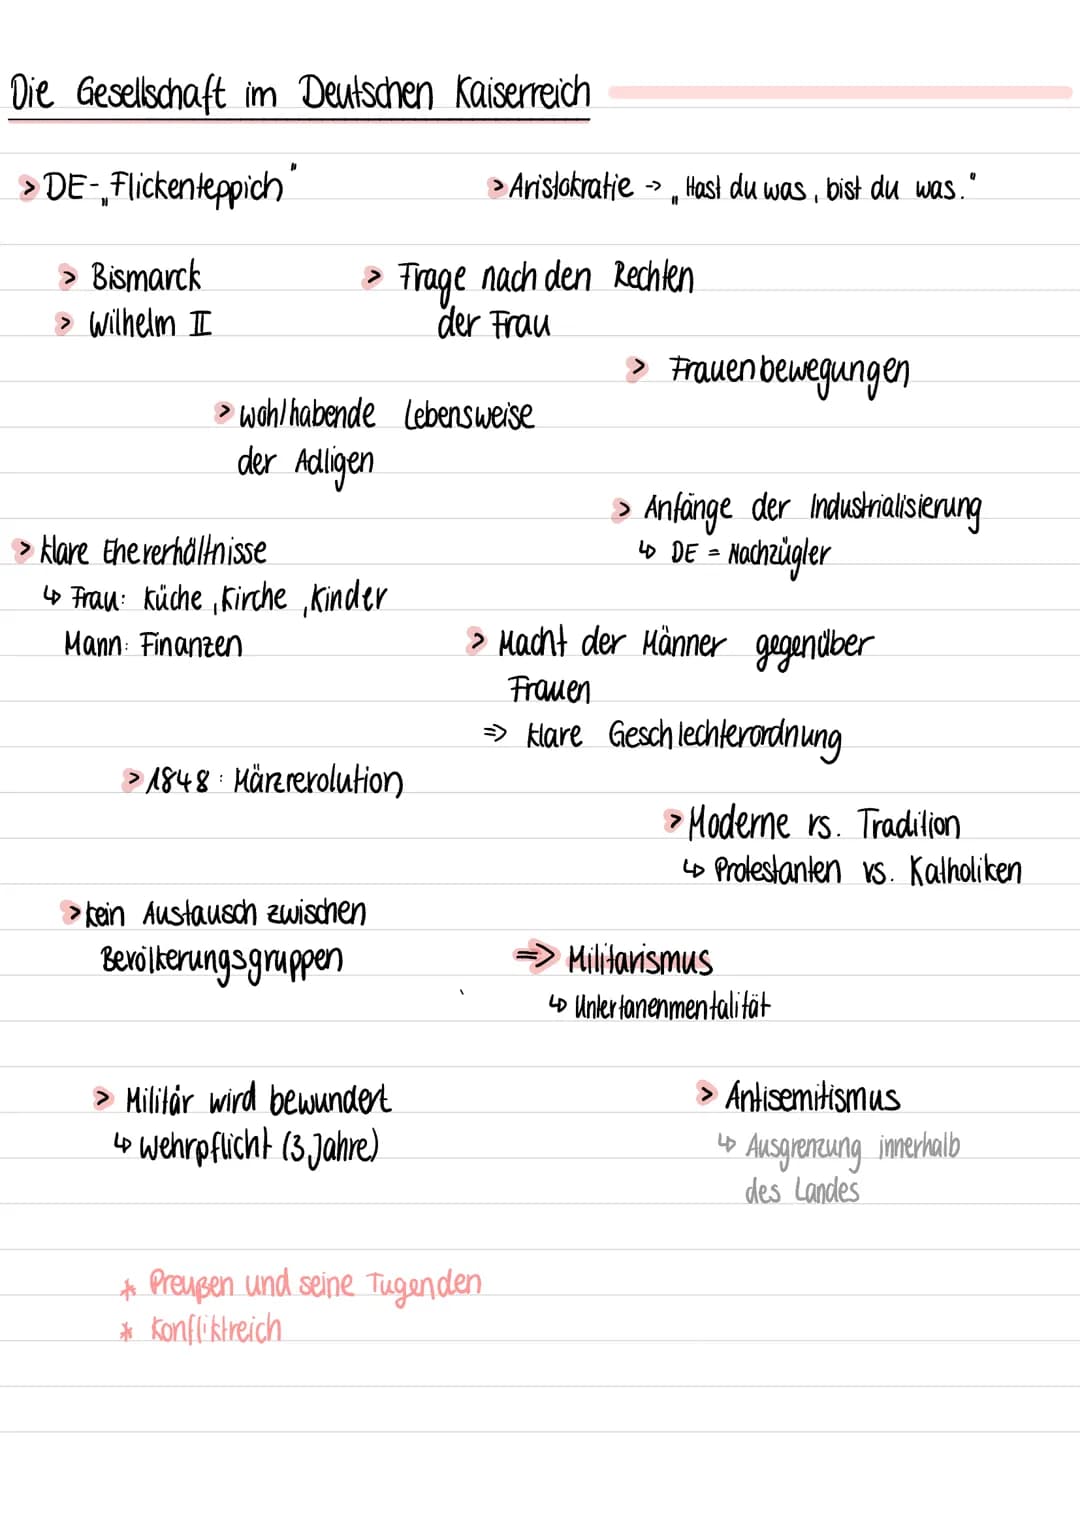 Die Gesellschaft im Deutschen Kaiserreich
> DE-„Flickenteppich"
> Aristokratie -> „Hast du was, bist du was."
> Bismarck
> Frage nach den Rechten
> Wilhelm II
der Frau
> Frauenbewegungen
> wohlhabende Lebensweise
der Adligen
> Anfänge der Industrialisierung
↳ DE = Nachzügler
> klare Eheverhältnisse
↳ Frau: Küche, Kirche, Kinder
Mann: Finanzen
> Macht der Männer gegenüber
Frauen
=> klare Geschlechterordnung
> 1848: Märzrevolution
> Moderne vs. Tradition
↳ Protestanten vs. Katholiken
> kein Austausch zwischen
Bevölkerungsgruppen
=> Militarismus
↳ Untertanenmentalität
> Militär wird bewundert
↳ Wehrpflicht (3 Jahre)
> Antisemitismus
↳ Ausgrenzung innerhalb
des Landes
* Preußen und seine Tugenden
* Konfliktreich